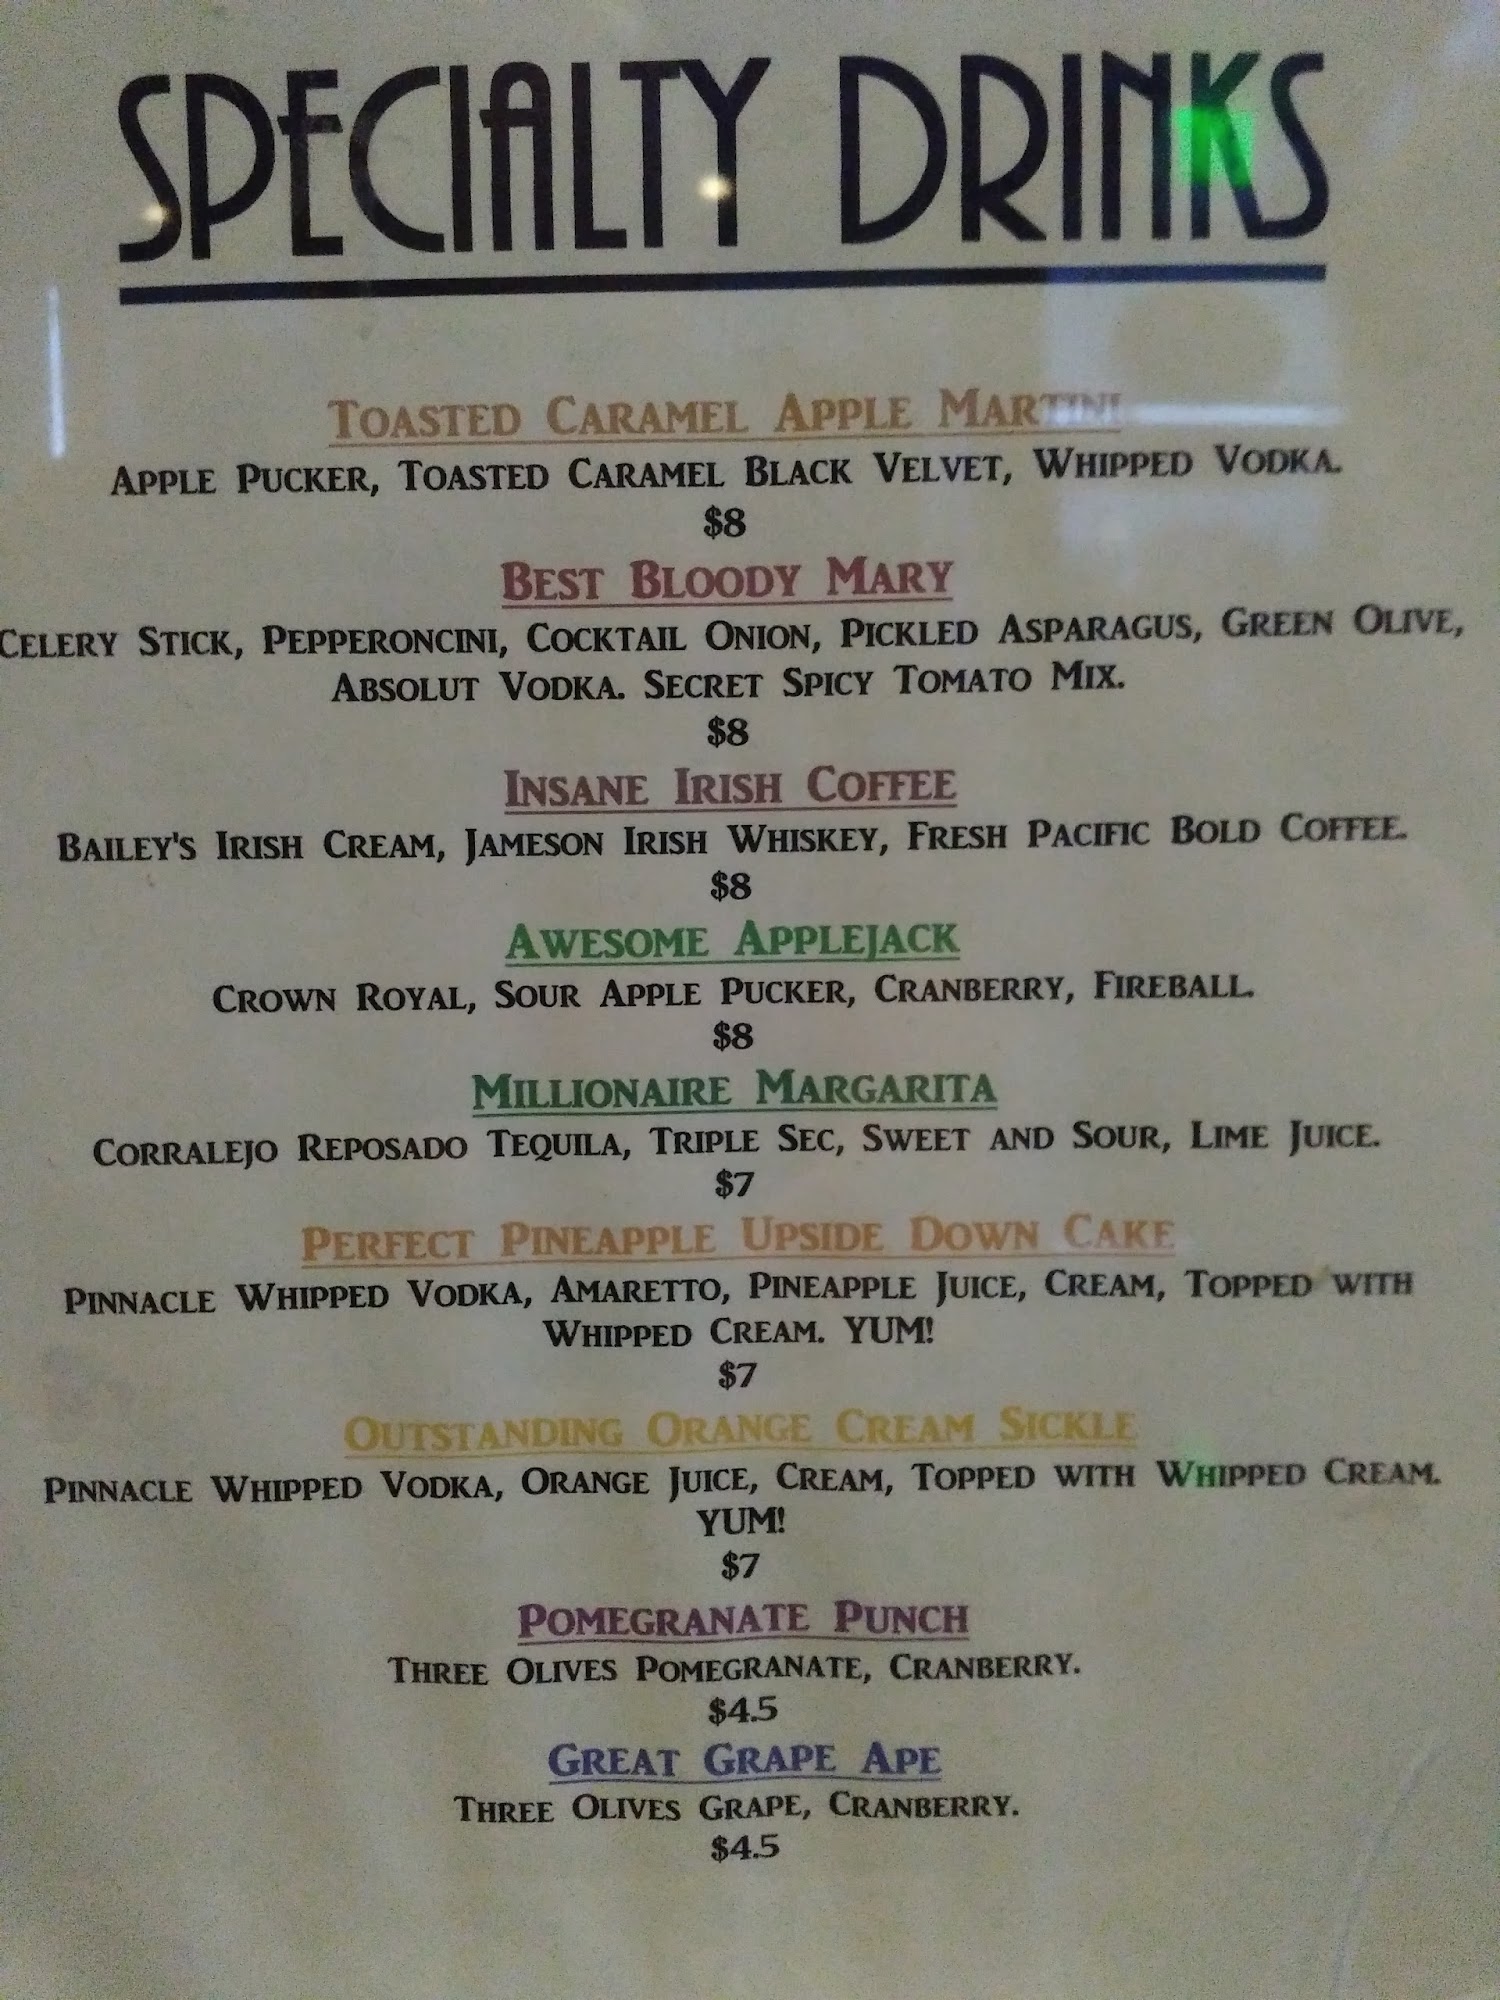 SPECIALTY DRINKS
TOASTED CARAMEL APPLE MARTINI
APPLE PUCKER, TOASTED CARAMEL BLACK VELVET, WHIPPED VODKA.
$8
BEST BLOODY MARY
CELERY STICK, PEPPERONCINI, COCKTAIL ONION, PICKLED ASPARAGUS, GREEN OLIVE,
ABSOLUT VODKA. SECRET SPICY TOMATO MIX.
$8
INSANE IRISH COFFEE
BAILEY'S IRISH CREAM, JAMESON IRISH WHISKEY, FRESH PACIFIC BOLD COFFEE.
$8
AWESOME APPLEJACK
CROWN ROYAL, SOUR APPLE PUCKER, CRANBERRY, FIREBALL.
$8
MILLIONAIRE MARGARITA
CORRALEJO REPOSADO TEQUILA, TRIPLE SEC, SWEET AND SOUR, LIME JUICE.
$7
PERFECT PINEAPPLE UPSIDE DOWN CAKE
PINNACLE WHIPPED VODKA, AMARETTO, PINEAPPLE JUICE, CREAM, TOPPED WITH
WHIPPED CREAM. YUM!
$7
OUTSTANDING ORANGE CREAM SICKLE
PINNACLE WHIPPED VODKA, ORANGE JUICE, CREAM, TOPPED WITH WHIPPED CREAM.
YUM!
$7
POMEGRANATE PUNCH
THREE OLIVES POMEGRANATE, CRANBERRY.
$4.5
GREAT GRAPE APE
THREE OLIVES GRAPE, CRANBERRY.
$4.5